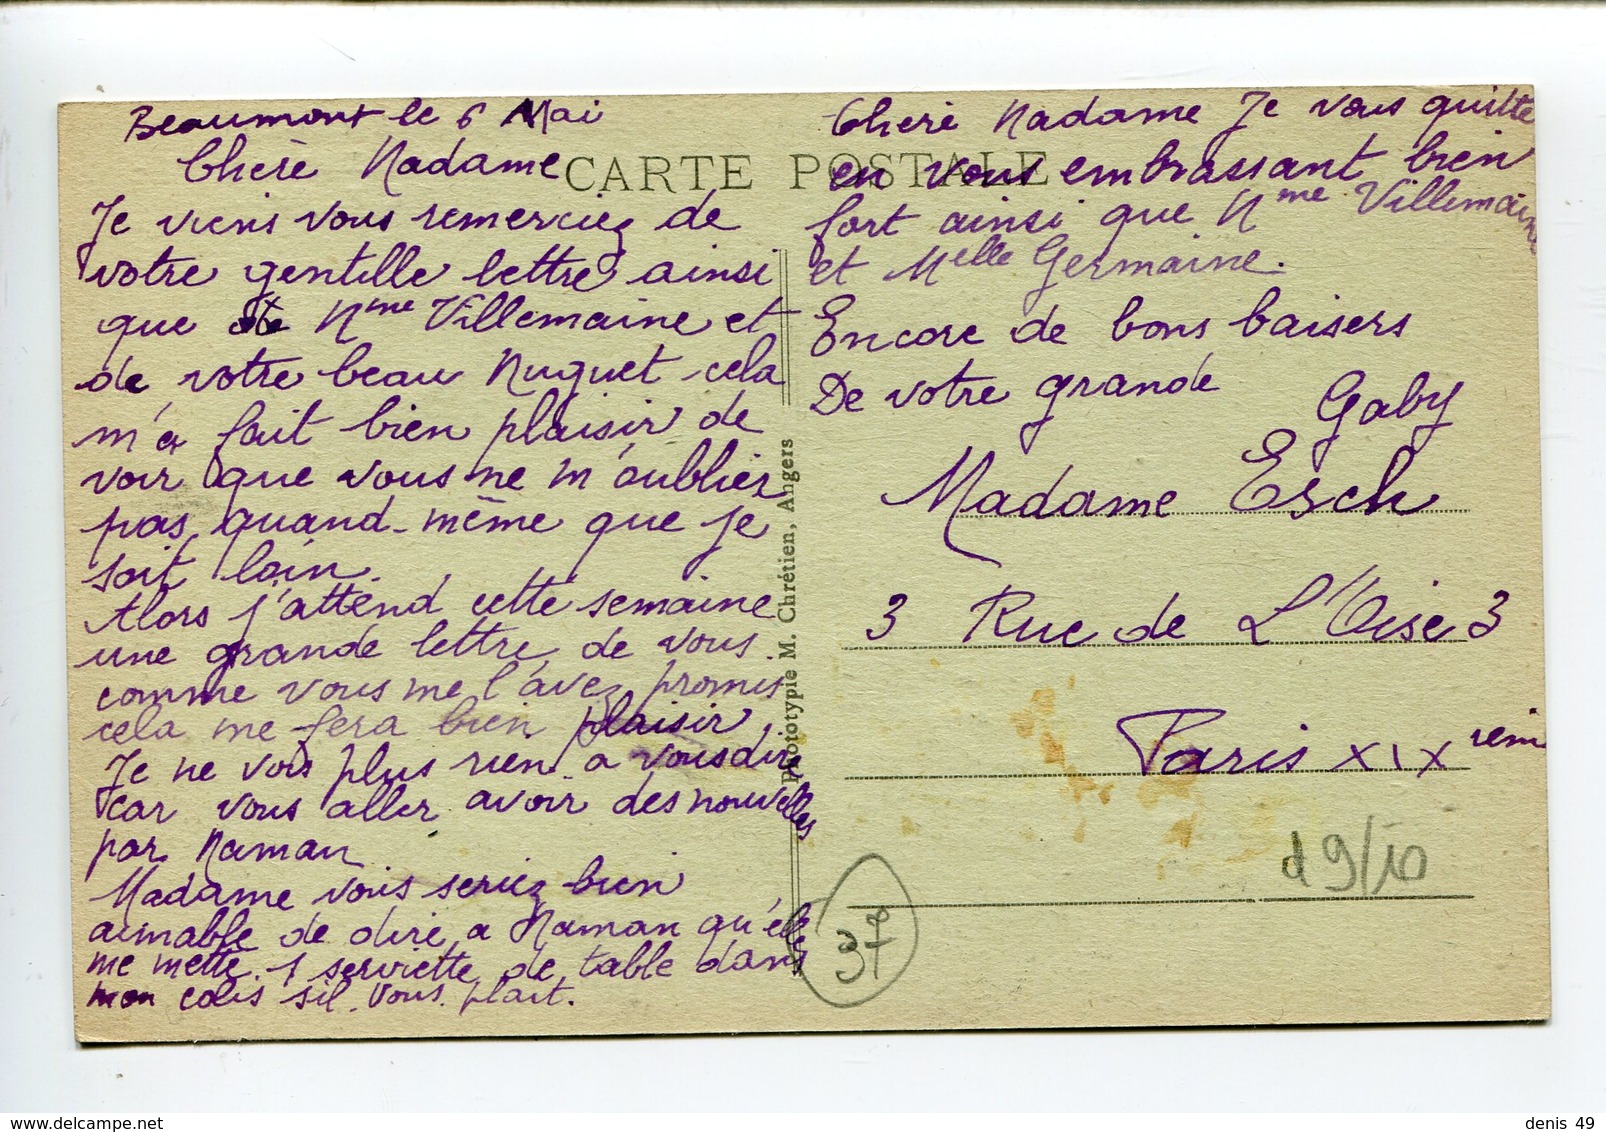 Beaumont le 6 Mai
Cherè Madame
Je viens vous remerciez de
votre gentille lettre ainsi
que Mme Villemaine et
de votre beau Muguet cela
m'a fait bien plaisir de
voir que vous ne m'oublier
pas quand-même que je
soit loin.
Alors j'attend cette semaine
une grande lettre de vous.
comme vous me l'avez promis
cela me fera bien plaisir
Je ne vois plus rien a vous dire
car vous aller avoir des nouvelles
par Maman
Madame vous seriez bien
aimable de dire a Maman qu'elle
me mette 1 serviette de table dans
mon colis sil. vous. plait.
CARTE POSTALE
Phototypie M. Chrétien, Angers
Cherè Madame Je vous quitte
en vous embrassant bien
fort ainsi que Mme Villemaine
et Melle Germaine.
Encore de bons baisers
De votre grande
Gaby
Madame Esch
3 Rue de L'Oise 3
Paris XIX
d 9/10
37
denis 49